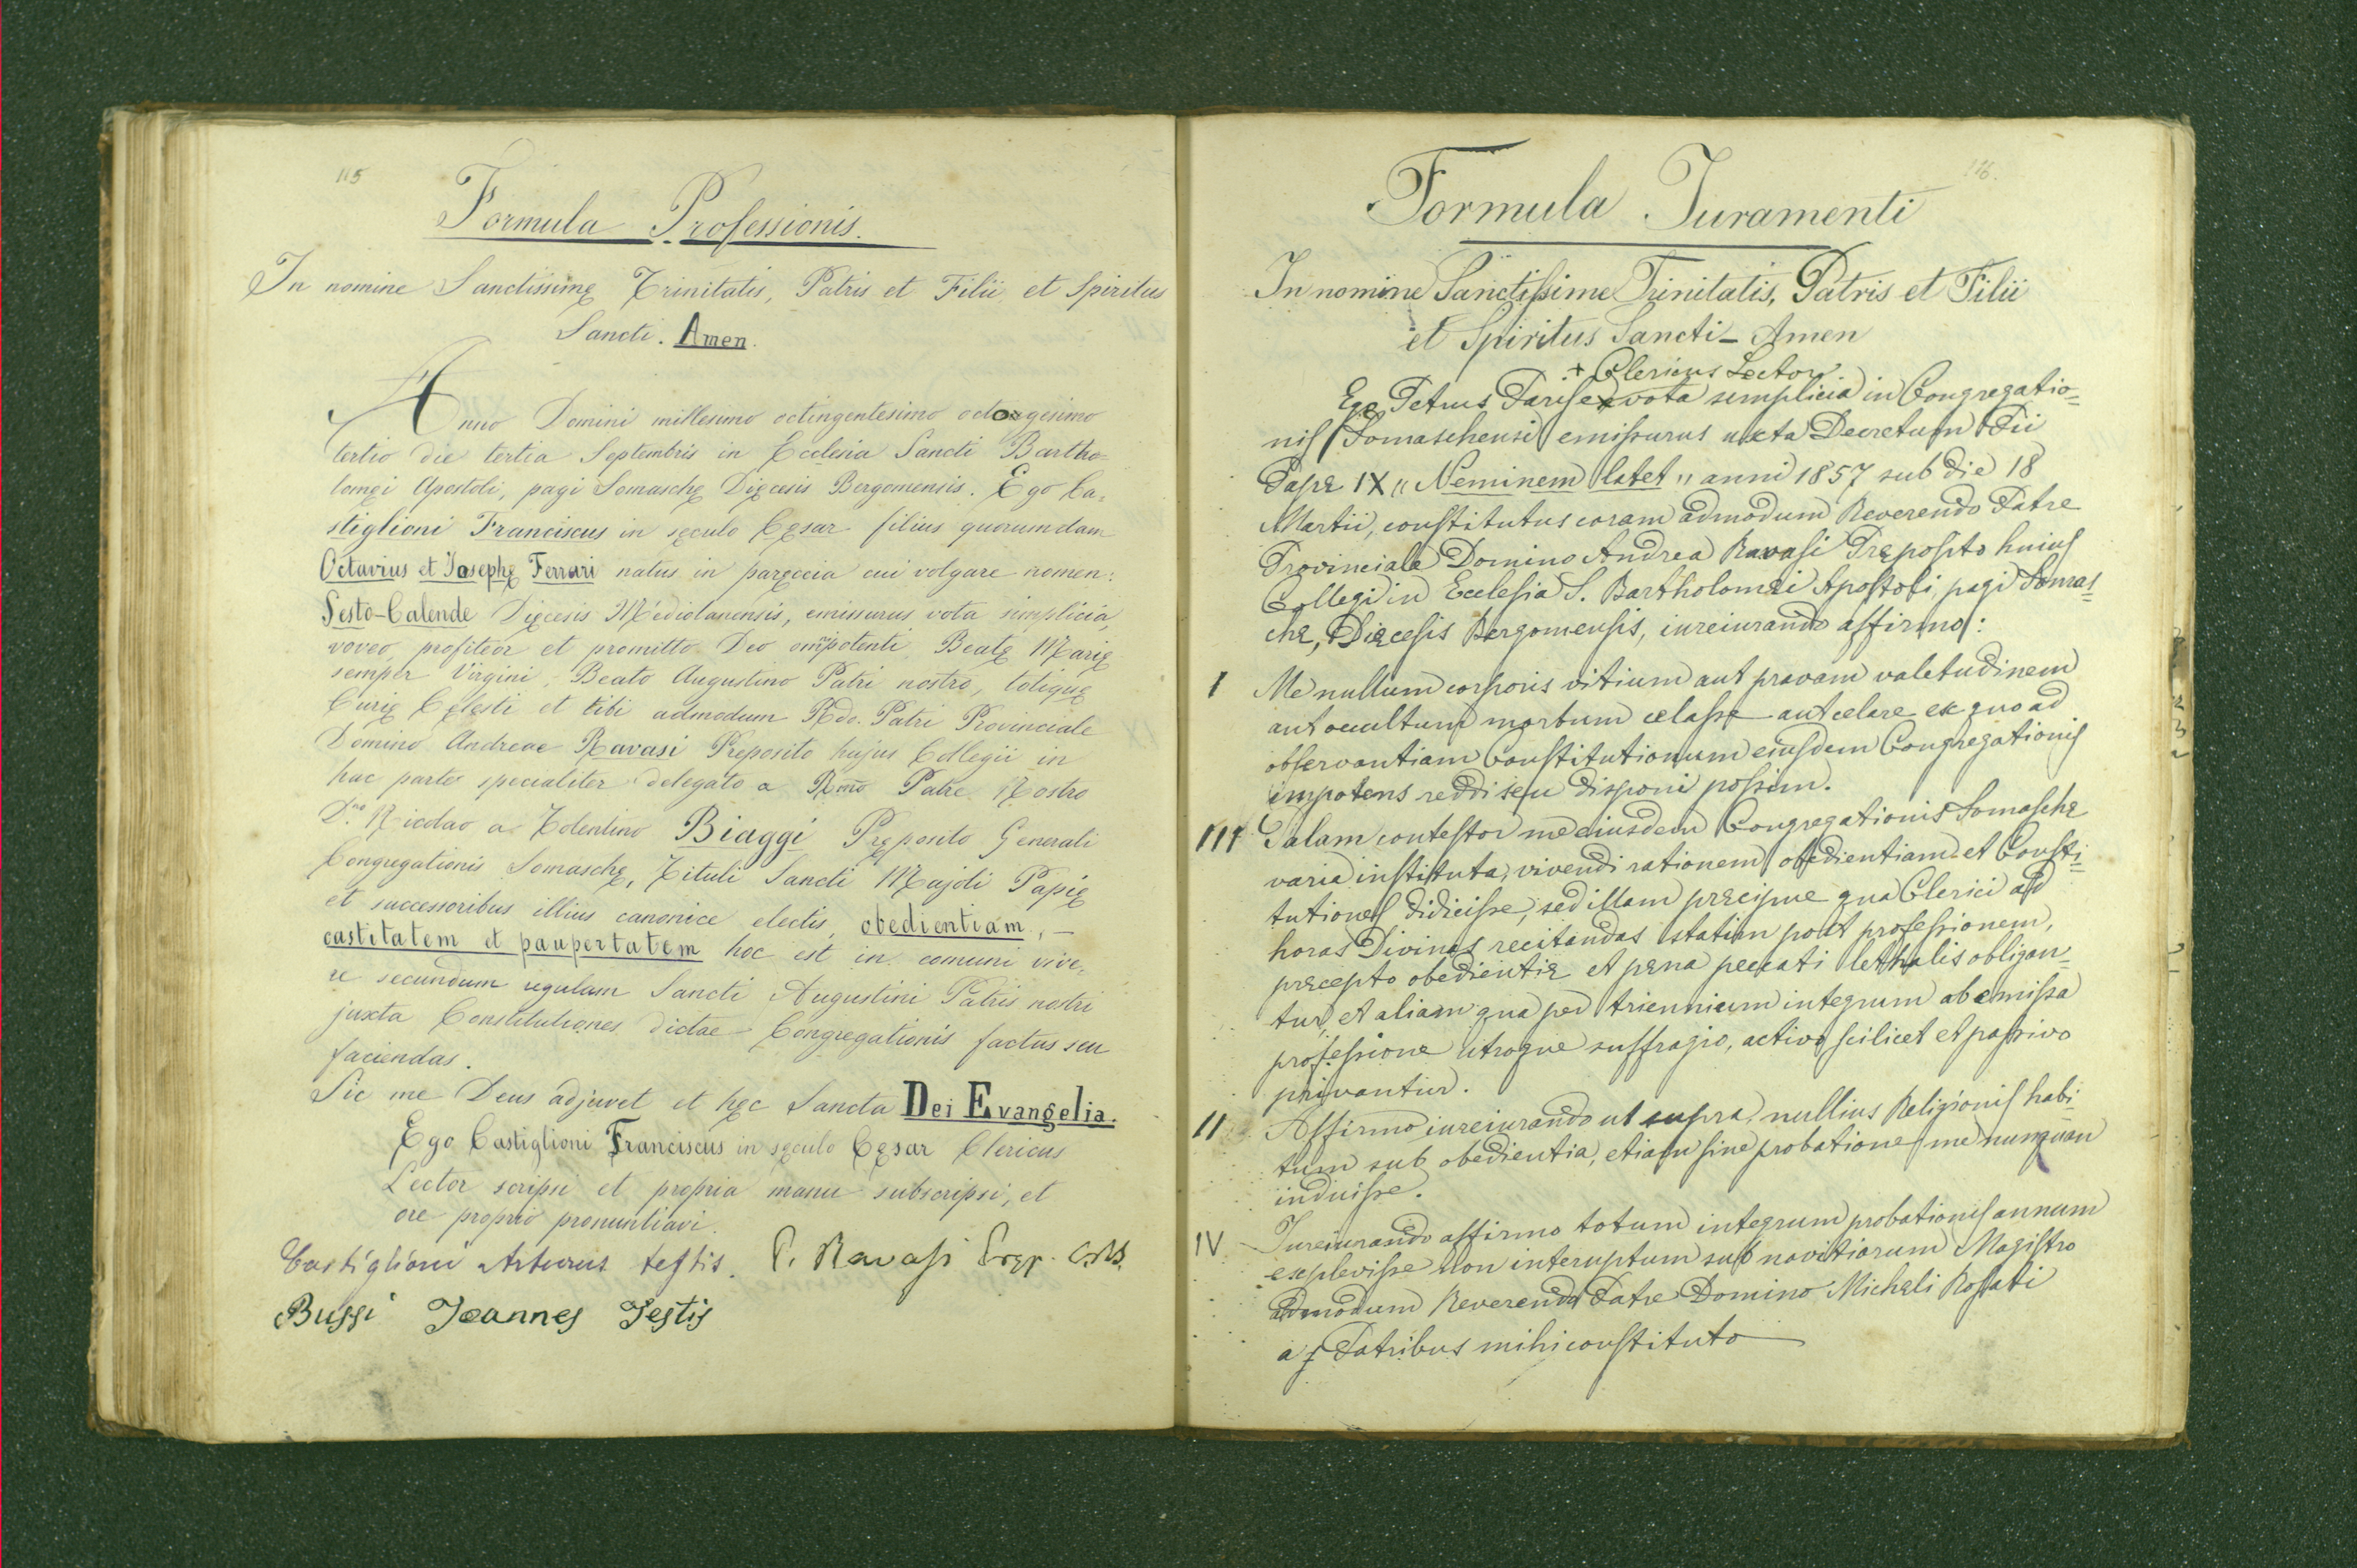 115
Formula Professionis.
In nomine Sanctissimę Trinitatis, Patris et Filii et Spiritus
Sancti. Amen.
Anno Domini millesimo octingentesimo octoagesimo
tertio die tertia Septembris in Ecclesia Sancti Bartho=
lomęi Apostoli, pagi Somaschę Dięcesis Bergomensis. Ego Ca=
stiglioni Franciscus in sęculo Cęsar filius quorumdam
Octavius et Josephę Ferrari natus in paręcia cui volgare nomen:
Sesto-Calende Dięcesis Mediolanensis, emissurus vota simplicia,
voveo, profiteor et promitto Deo omĩpotenti Beatę Marię
semper Virgini, Beato Augustino Patri nostro, totięuę
Curię Cęlesti et tibi admodum Rdo. Patri Provinciale
Domino Andreae Ravasi Preposito hujus Collegii in
hac parte specialiter delegato a Rmõ Patre Nostro
D.no Nicolao a Tolentino Biaggi Pręposito Generali
Congregationis Somaschę, Tituli Sancti Majoli Papię
et successoribus illius canonice electis, obedientiam, —
castitatem et paupertatem hoc est in comuni vive=
re secundum regulam Sancti Augustini Patris nostri
juxta Constitutiones dictae Congregationis factus seu
faciendas.
Sic me Deus adjuvet et hęc Sancta Dei Evangelia.
Ego Castiglioni Franciscus in sęculo Cęsar Clericus
Lector scripsi et propria manu subscripsi, et
ore proprio pronuntiavi.
Castiglioni Arturus testis. P. Ravasi Pręp. CRS.
Bussi Joannes Testis
116.
Formula Juramenti
In nomine Sanctissime Trinitatis, Patris et Filii
et Spiritus Sancti - Amen
+ Clericus Lector
Ego Petrus Parise x vota semplicia in Congregatio=
nis Somaschensi emissurus uxta Decretum Pii
Papę IX "Neminem latet" anni 1857 sub die 18
Martii, constitutus coram admodum Reverendo Patre
Provinciale Domino Andrea Ravasi Pręposito huius
Collegi in Ecclesia S. Bartholomęi Apostoli, pagi Somas=
chę, Dięcesis Bergomensis, iureiurando affirmo:
I Me nullum corporis vitium aut pravam valetudinem
aut occultum morbum celasse aut celare ex quo ad
observantiam Constitutionum eiusdem Congregationis
impotens reddi seu disponi possim.
III Palam contestor me eiusdem Congregationis Somaschę
varia instituta, vivendi rationem obedientiam et Consti=
tutiones didicisse, sed illam pręcipue qua Clerici ad
horas Divinas recitandas statim post professionem,
pręcepto obedientię et pęna peccati lethalis obligan=
tur, et aliam qua per triennium integrum ab emissa
professione utroque suffragio, activo scilicet et passivo
privantur.
II Affirmo iureiurando ut supra, nullius Religionis habi=
tum sub obedientia, etiam sine probatione me numquan
induisse.
IV Iureiurando affirmo totum integrum probationis annum
explevisse non interuptum sub novitiorum Magistro
admodum Reverendo Patre Domino Michęli Rosati
a Patribus mihi constituto